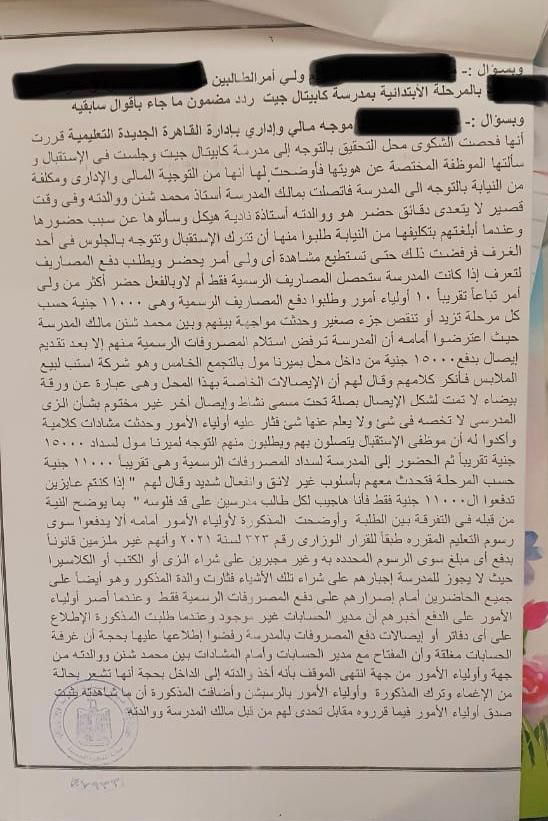 ٦
وبسؤال :- ولي أمر الطالبين
بالمرحلة الأبتدائية بمدرسة كابيتال جيت ردد مضمون ما جاء بأقوال سابقيه
وبسؤال :- موجه مالي وإداري بإدارة القاهرة الجديدة التعليمية قررت
أنها فحصت الشكوى محل التحقيق بالتوجه إلى مدرسة كابيتال جيت وجلست فى الإستقبال و
سألتها الموظفة المختصة عن هويتها فأوضحت لها أنها من التوجية المالى والإدارى ومكلفة
من النيابة بالتوجه الى المدرسة فاتصلت بمالك المدرسة أستاذ محمد شنن ووالدته وفى وقت
قصير لا يتعدى دقائق حضر هو ووالدته أستاذة نادية هيكل وسألوها عن سبب حضورها
وعندما أبلغتهم بتكليفها من النيابة طلبوا منها أن تترك الإستقبال وتتوجه بالجلوس في أحد
الغرف فرفضت ذلك حتى تستطيع مشاهدة أى ولى أمر يحضر ويطلب دفع المصاريف
لتعرف إذا كانت المدرسة ستحصل المصاريف الرسمية فقط أم لاوبالفعل حضر أكثر من ولى
أمر تباعاً تقريباً ١٠ أولياء أمور وطلبوا دفع المصاريف الرسمية وهى ١١٠٠٠ جنية حسب
كل مرحلة تزيد أو تنقص جزء صغير وحدثت مواجهة بينهم وبين محمد شنن مالك المدرسة
حيث اعترضوا أمامه أن المدرسة ترفض استلام المصروفات الرسمية منهم إلا بعد تقديم
إيصال بدفع ١٥٠٠٠ جنية من داخل محل بميرنا مول بالتجمع الخامس وهو شركة استب لبيع
الملابس فأنكر كلامهم وقال لهم أن الإيصالات الخاصة بهذا المحل وهى عبارة عن ورقة
بيضاء لا تمت لشكل الإيصال بصلة تحت مسمى نشاط وإيصال أخر غير مختوم بشأن الزى
المدرسى لا تخصه في شئ ولا يعلم عنها شئ فثار عليه أولياء الأمور وحدثت مشادات كلامية
وأكدوا له أن موظفى الإستقبال يتصلون بهم ويطلبون منهم التوجه لميرنا مول لسداد ١٥٠٠٠
جنية تقريباً ثم الحضور إلى المدرسة لسداد المصروفات الرسمية وهى تقريباً ١١٠٠٠ جنية
حسب المرحلة فتحدث معهم بأسلوب غير لائق وانفعال شديد وقال لهم " إذا كنتم عايزين
تدفعوا ال١١٠٠٠ جنية فقط فأنا هاجيب لكل طالب مدرسين على قد فلوسه " بما يوضح النية
من قبله في التفرقة بين الطلبة وأوضحت المذكورة لأولياء الأمور أمامه ألا يدفعوا سوى
رسوم التعليم المقرره طبقاً للقرار الوزارى رقم ٣٢٣ لسنة ٢٠٢١ وأنهم غير ملزمين قانوناً
بدفع أى مبلغ سوى الرسوم المحدده به وغير مجبرين على شراء الزى أو الكتب أو الكلاسيرا
حيث لا يجوز للمدرسة إجبارهم على شراء تلك الأشياء فثارت والدة المذكور وهو أيضاً على
جميع الحاضرين أمام إصرارهم على دفع المصروفات الرسمية فقط وعندما أصر أولياء
الأمور على الدفع أخبرهم أن مدير الحسابات غير موجود وعندما طلبت المذكورة الإطلاع
على أى دفاتر أو إيصالات دفع المصروفات بالمدرسة رفضوا إطلاعها عليها بحجة أن غرفة
الحسابات مغلقة وأن المفتاح مع مدير الحسابات وأمام المشادات بين محمد شنن ووالدته من
جهة وأولياء الأمور من جهة انتهى الموقف بأنه أخذ والدته إلى الداخل بحجة أنها تشعر بحالة
من الإغماء وترك المذكورة وأولياء الأمور بالرسبشن وأضافت المذكورة أن ما شاهدته يثبت
صدق أولياء الأمور فيما قرروه مقابل تحدى لهم من قبل مالك المدرسة ووالدته